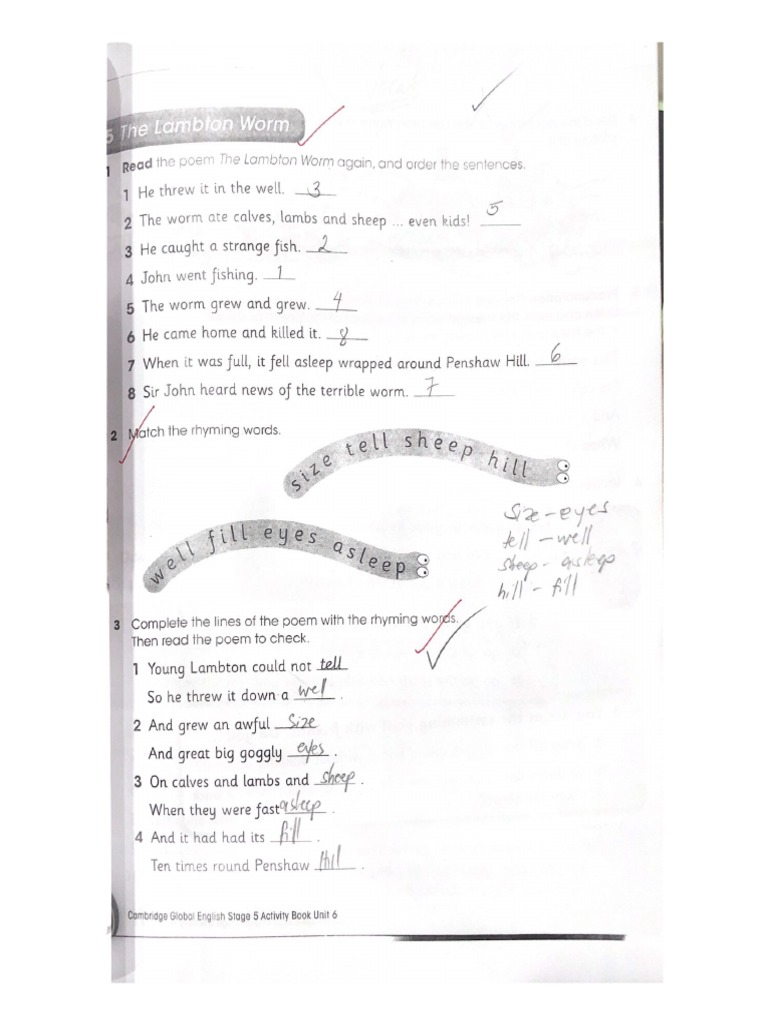 5 The Lambton Worm
1 Read the poem The Lambton Worm again, and order the sentences.
1 He threw it in the well. 3
2 The worm ate calves, lambs and sheep ... even kids! 5
3 He caught a strange fish. 2
4 John went fishing. 1
5 The worm grew and grew. 4
6 He came home and killed it. 8
7 When it was full, it fell asleep wrapped around Penshaw Hill. 6
8 Sir John heard news of the terrible worm. 7
2 Match the rhyming words.
size tell sheep hill
well fill eyes asleep
size - eyes
tell - well
sheep - asleep
hill - fill
3 Complete the lines of the poem with the rhyming words.
Then read the poem to check.
1 Young Lambton could not tell
So he threw it down a wel .
2 And grew an awful size
And great big goggly eyes .
3 On calves and lambs and sheep .
When they were fast asleep .
4 And it had had its fill .
Ten times round Penshaw hill .
Cambridge Global English Stage 5 Activity Book Unit 6